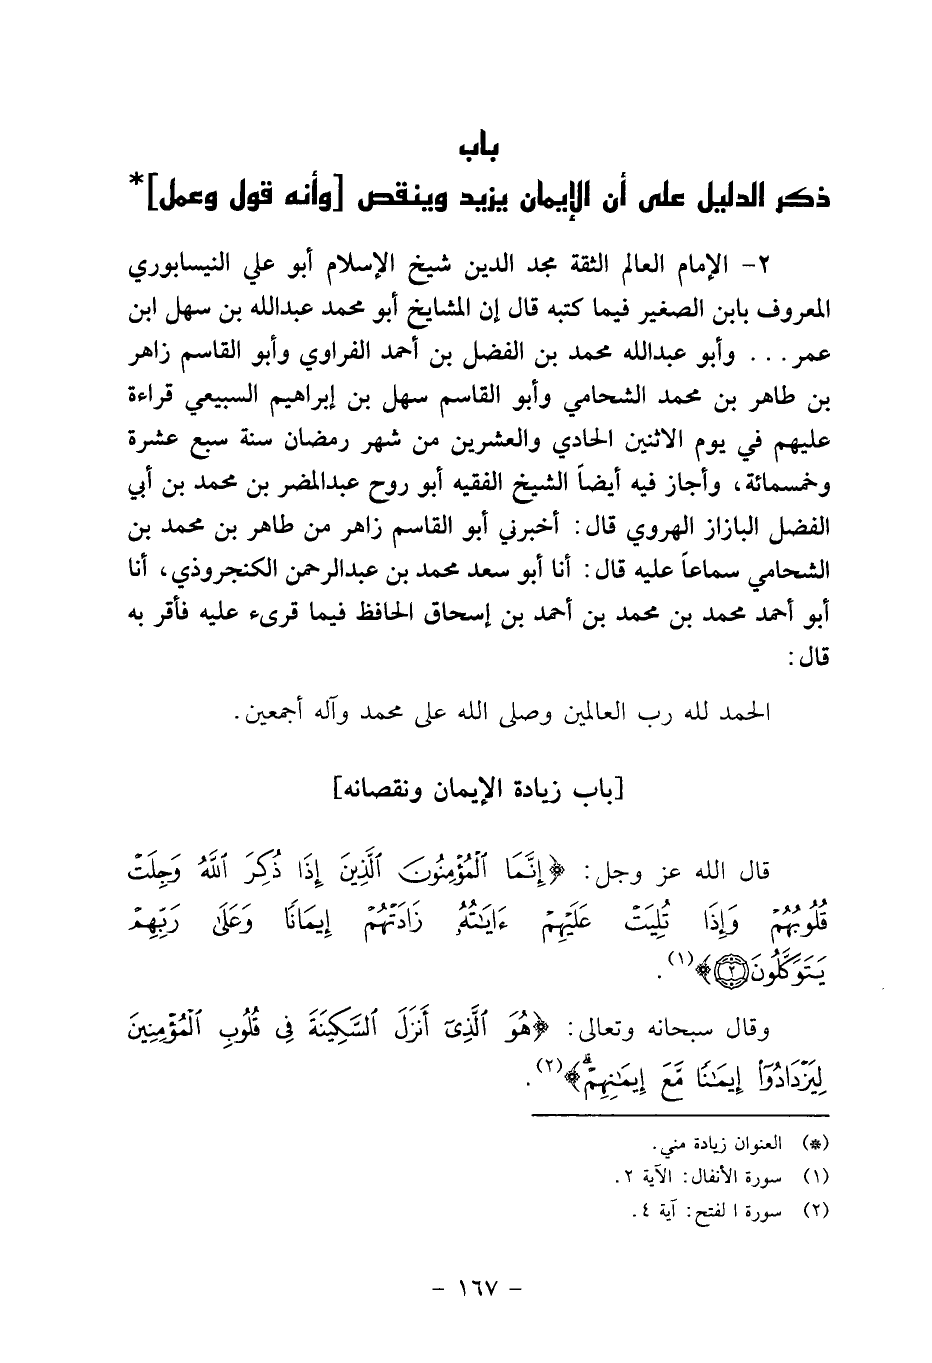 باب
ذكر الدليل على أن الإيمان يزيد وينقص [وأنه قول وعمل]*
٢- الإمام العالم الثقة مجد الدين شيخ الإسلام أبو علي النيسابوري
المعروف بابن الصغير فيما كتبه قال إن المشايخ أبو محمد عبدالله بن سهل ابن
عمر... وأبو عبدالله محمد بن الفضل بن أحمد الفراوي وأبو القاسم زاهر
بن طاهر بن محمد الشحامي وأبو القاسم سهل بن إبراهيم السبيعي قراءة
عليهم في يوم الاثنين الحادي والعشرين من شهر رمضان سنة سبع عشرة
وخمسمائة، وأجاز فيه أيضاً الشيخ الفقيه أبو روح عبدالمضر بن محمد بن أبي
الفضل البازاز الهروي قال: أخبرني أبو القاسم زاهر من طاهر بن محمد بن
الشحامي سماعاً عليه قال: أنا أبو سعد محمد بن عبدالرحمن الكنجروذي، أنا
أبو أحمد محمد بن محمد بن أحمد بن إسحاق الحافظ فيما قرىء عليه فأقر به
قال:
الحمد لله رب العالمين وصلى الله على محمد وآله أجمعين.
[باب زيادة الإيمان ونقصانه]
قال الله عز وجل: ﴿إِنَّمَا ٱلْمُؤْمِنُونَ ٱلَّذِينَ إِذَا ذُكِرَ ٱللَّهُ وَجِلَتْ
قُلُوبُهُمْ وَإِذَا تُلِيَتْ عَلَيْهِمْ ءَايَٰتُهُۥ زَادَتْهُمْ إِيمَانًا وَعَلَىٰ رَبِّهِمْ
يَتَوَكَّلُونَ ٢﴾(١).
وقال سبحانه وتعالى: ﴿هُوَ ٱلَّذِىٓ أَنزَلَ ٱلسَّكِينَةَ فِى قُلُوبِ ٱلْمُؤْمِنِينَ
لِيَزْدَادُوٓا۟ إِيمَٰنًا مَّعَ إِيمَٰنِهِمْ ۗ﴾(٢).
(*) العنوان زيادة مني.
(١) سورة الأنفال: الآية ٢.
(٢) سورة ا لفتح: آية ٤.
- ١٦٧ -